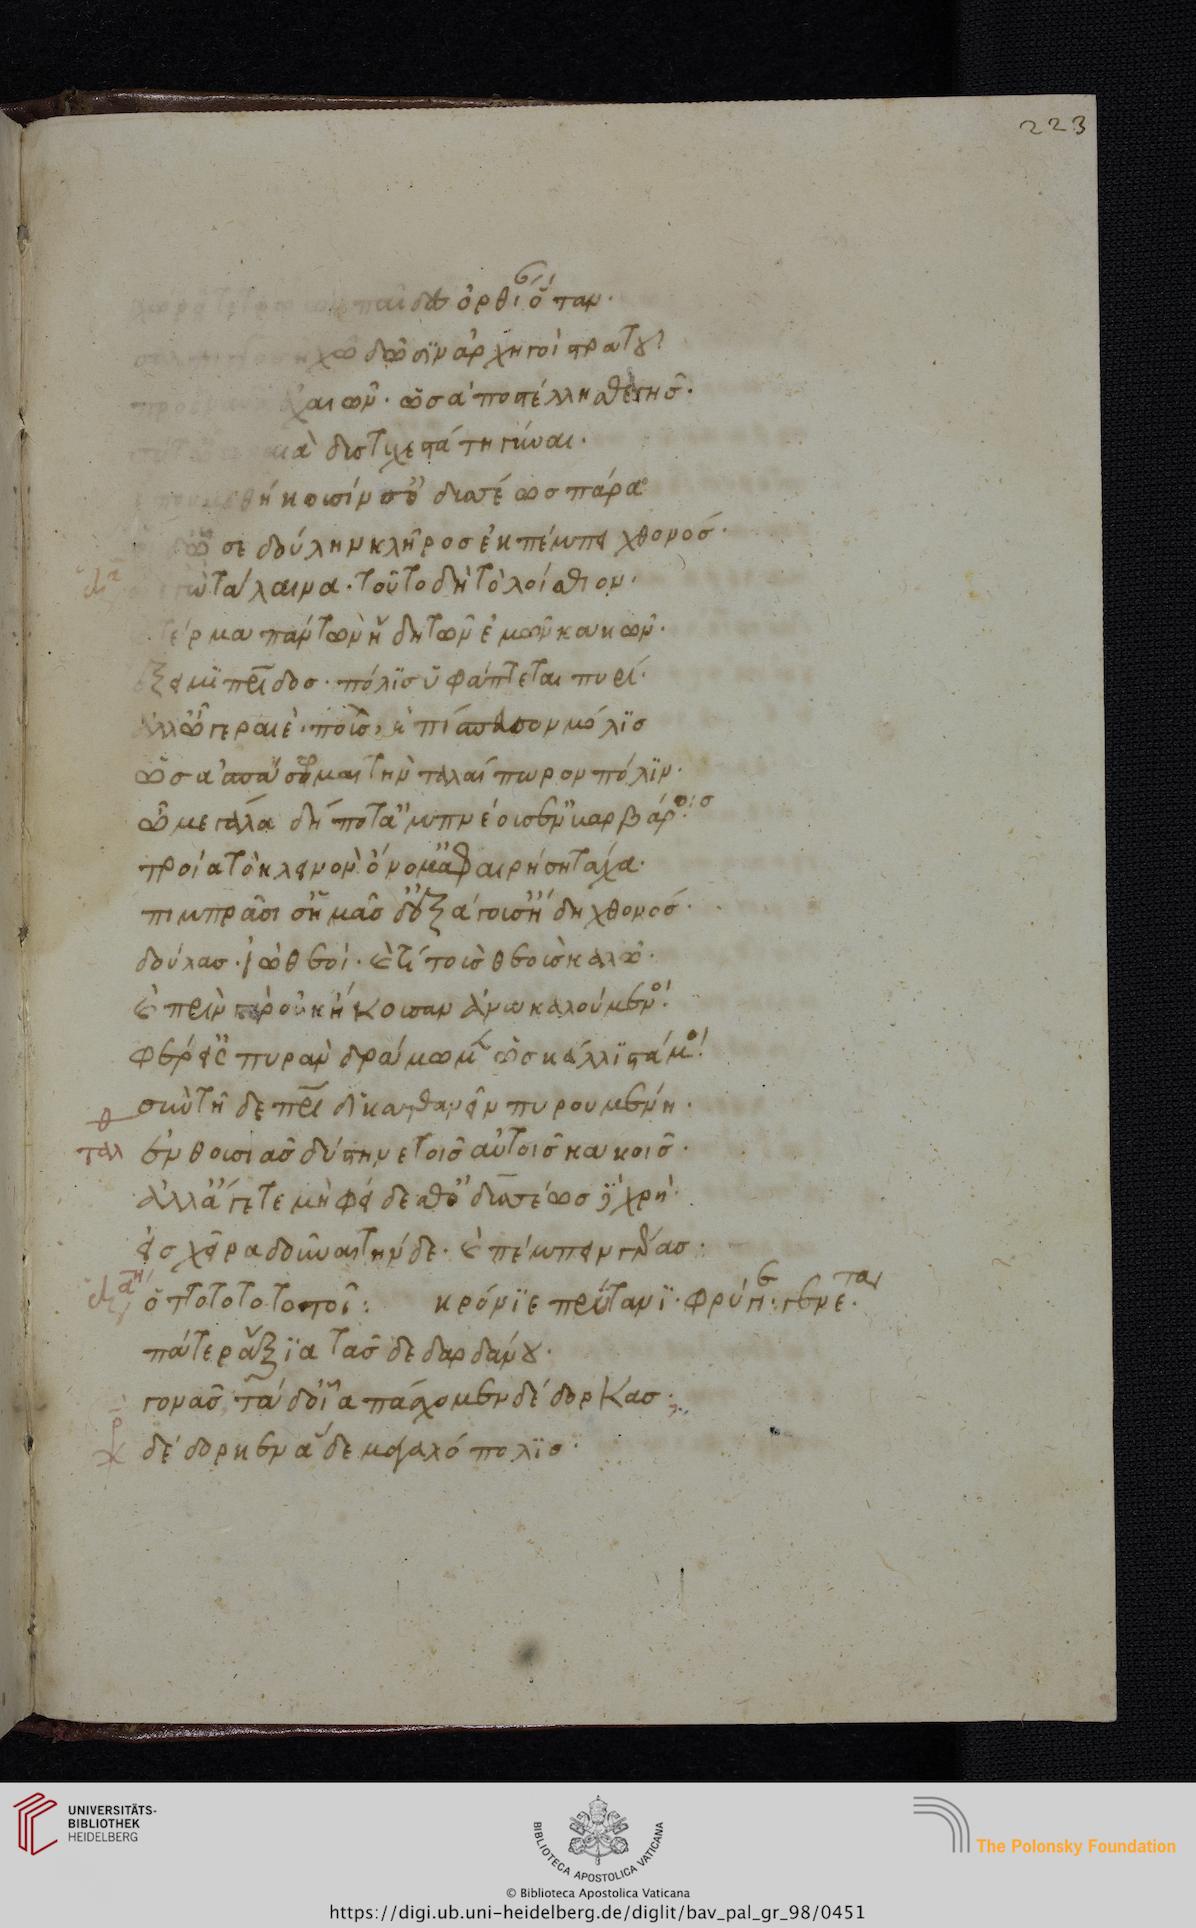 223
χωρεῖτε τρώων παῖδες ὀρθίαν ὅταν·
σάλπιγγος ἠχὼ δῶσιν ἀρχηγοὶ στρατοῦ
πρὸς ναῦς ἀχαιῶν· ὡς ἀποστέλλῃ σθε γῆς·
σύ τ' ὦ γεραιὰ δυστυχεστάτη γύναι·
ἕπου μεθήκουσίν σ' ὀδυσσέως πάρα
οὗ σε δούλην κλῆρος ἐκπέμπει χθονός·
οἲ ἐγὼ τάλαινα· τοῦτο δὴ τὸ λοίσθιον·
τέρμα πάντων ἤδη τῶν ἐμῶν κακῶν·
ἔξειμι πατρίδος· πόλις ὑφάπτεται πυρί·
ἀλλ' ὦ γεραιὲ ποὺς, ἐπίσπευσον μόλις
ὡς ἀσπάσωμαι τὴν ταλαίπωρον πόλιν·
ὦ μεγάλα δή ποτ' ἀμπνέουσ' ἐν βαρβάροις
τροία τὸ κλεινὸν ὄνομ' ἀφαιρήσῃ τάχα·
πιμπρᾶσί σ' ἡμᾶς δ' ἐξάγουσ' ἤδη χθονός·
δούλας· ἰὼ θεοί· καὶ τί τοὺς θεοὺς καλῶ·
καὶ πρὶν γὰρ οὐκ ἤκουσαν ἀνακαλούμενοι
φέρ' εἰς πυρὰν δράμωμεν ὡς κάλλιστά μοι
σὺν τῇδε πατρίδι κατθανεῖν πυρουμένῃ·
ταλ ἐνθουσιᾶς δύστηνε τοῖς αὐτοῖς κακοῖς·
ἀλλ' ἄγετε μὴ φείδεσθ' ὀδυσσέως δὲ χρὴ·
εἰς χεῖρα δοῦναι τήνδε· καὶ πέμπειν γέρας·
ὀττοτοτοτοτοῖ: κρόνιε πρύτανι· φρύγιε· γενέτα
πάτερ ἀνάξια τᾶς δε δαρδάνου·
γονᾶς τάδ' οἷα πάσχομεν δέδορκας·
δέδορκεν ἁ δε μεγαλόπολις·
UNIVERSITÄTS-
BIBLIOTHEK
HEIDELBERG
BIBLIOTECA APOSTOLICA VATICANA
The Polonsky Foundation
© Biblioteca Apostolica Vaticana
https://digi.ub.uni-heidelberg.de/diglit/bav_pal_gr_98/0451